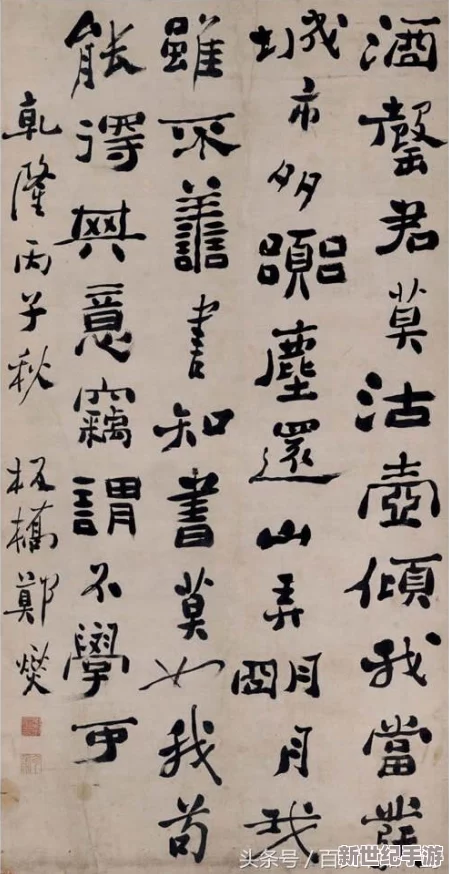 酒罄君莫沽壺傾我當發
城市多囂塵還山弄明月我
雖不譱書知書莫如我苟
能得其意竊謂不學可
乾隆丙子秋 板橋鄭燮
头条号／百
新世纪手游